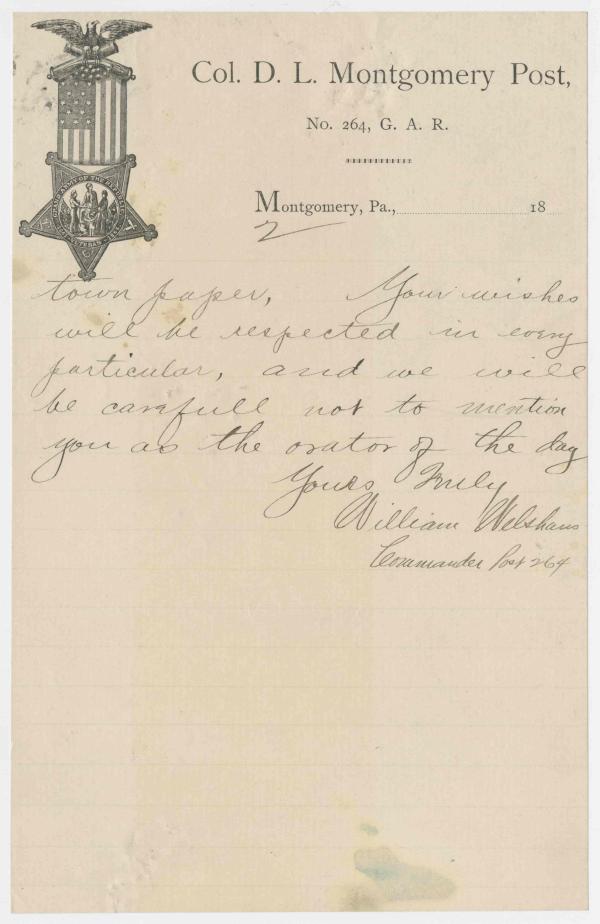 Col. D. L. Montgomery Post,
No. 264, G. A. R.
Montgomery, Pa., 18
2
town paper, Your wishes
will be respected in every
particular, and we will
be carefull not to mention
you as the orator of the day
Yours Truly
William Welshans
Commander Post 264
GRAND ARMY OF THE REPUBLIC
VETERAN